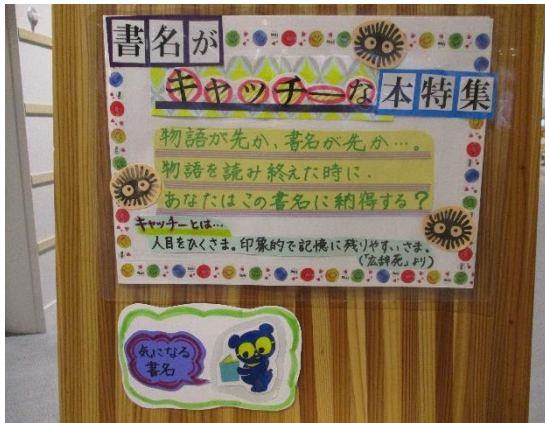 書名が
キャッチーな本特集
物語が先か、書名が先か…。
物語を読み終えた時に、
あなたはこの書名に納得する?
キャッチーとは…
人目をひくさま。印象的で記憶に残りやすいさま。
(「広辞苑」より)
気になる
書名